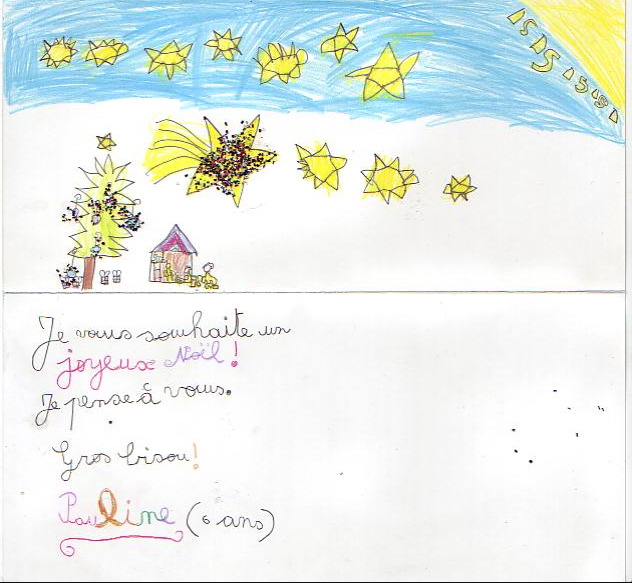 Je vous souhaite un
joyeux Noël !
Je pense à vous.
Gros bisou !
Pauline (6 ans)